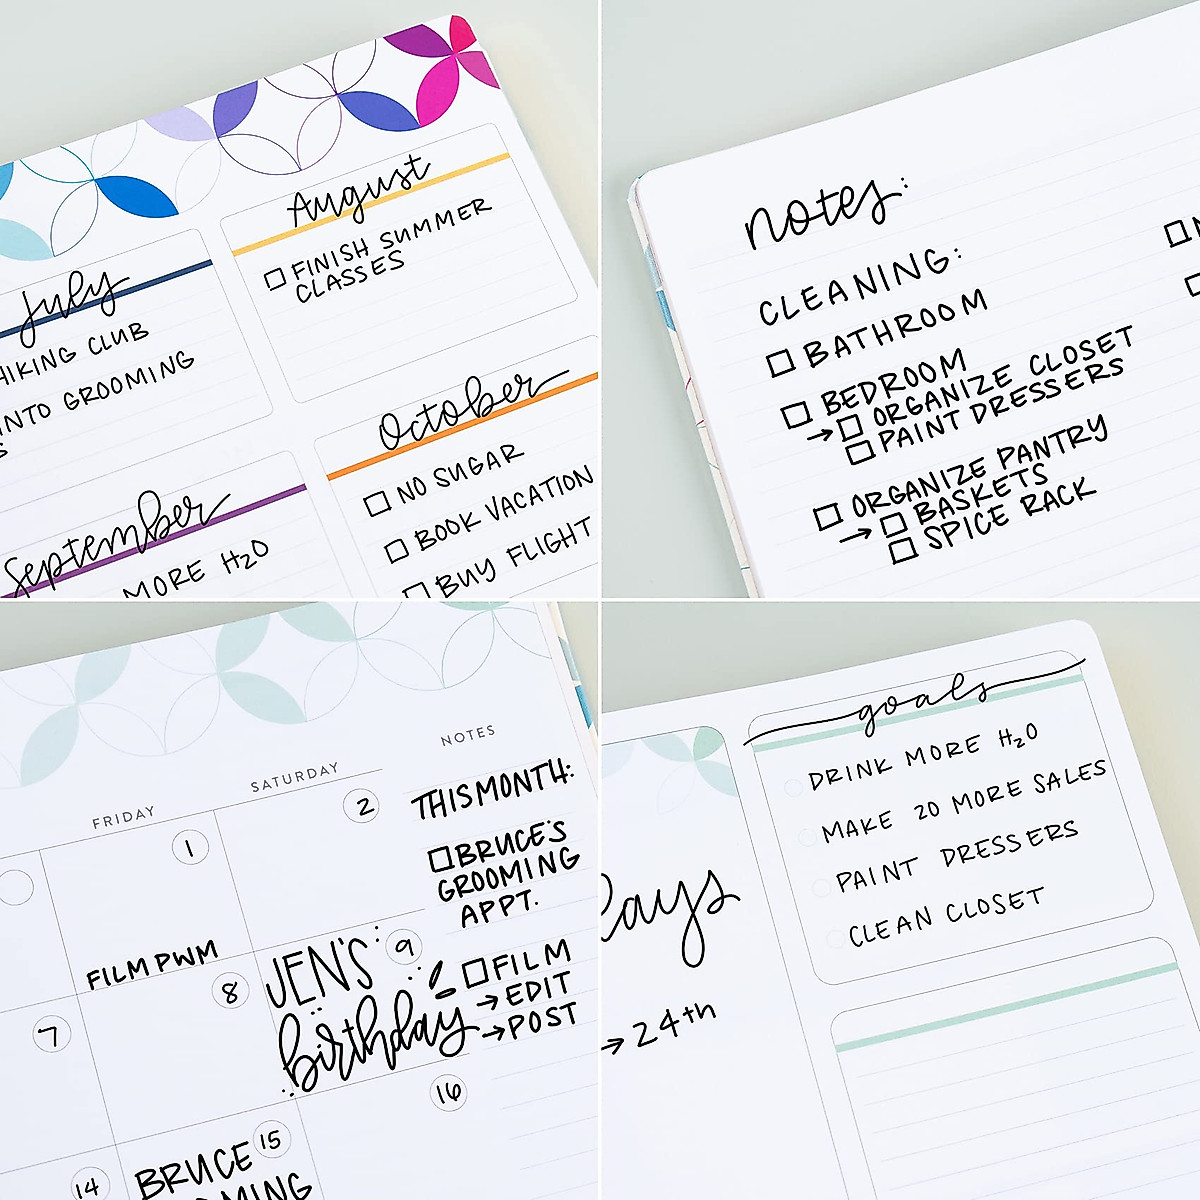 August
FINISH SUMMER
CLASSES
July
HIKING CLUB
INTO GROOMING
S
October
NO SUGAR
BOOK VACATION
BUY FLIGHT
September
MORE H₂O
notes:
CLEANING:
BATHROOM
BEDROOM
→ ORGANIZE CLOSET
PAINT DRESSERS
ORGANIZE PANTRY
→ BASKETS
SPICE RACK
NOTES
SATURDAY
FRIDAY
THIS MONTH:
BRUCE'S
GROOMING
APPT.
FILM
→ EDIT
→ POST
1
2
FILM PWM
7
8
JEN'S 9
birthday
14
BRUCE 15
OMING
16
goals
DRINK MORE H₂O
MAKE 20 MORE SALES
PAINT DRESSERS
CLEAN CLOSET
days
→ 24th